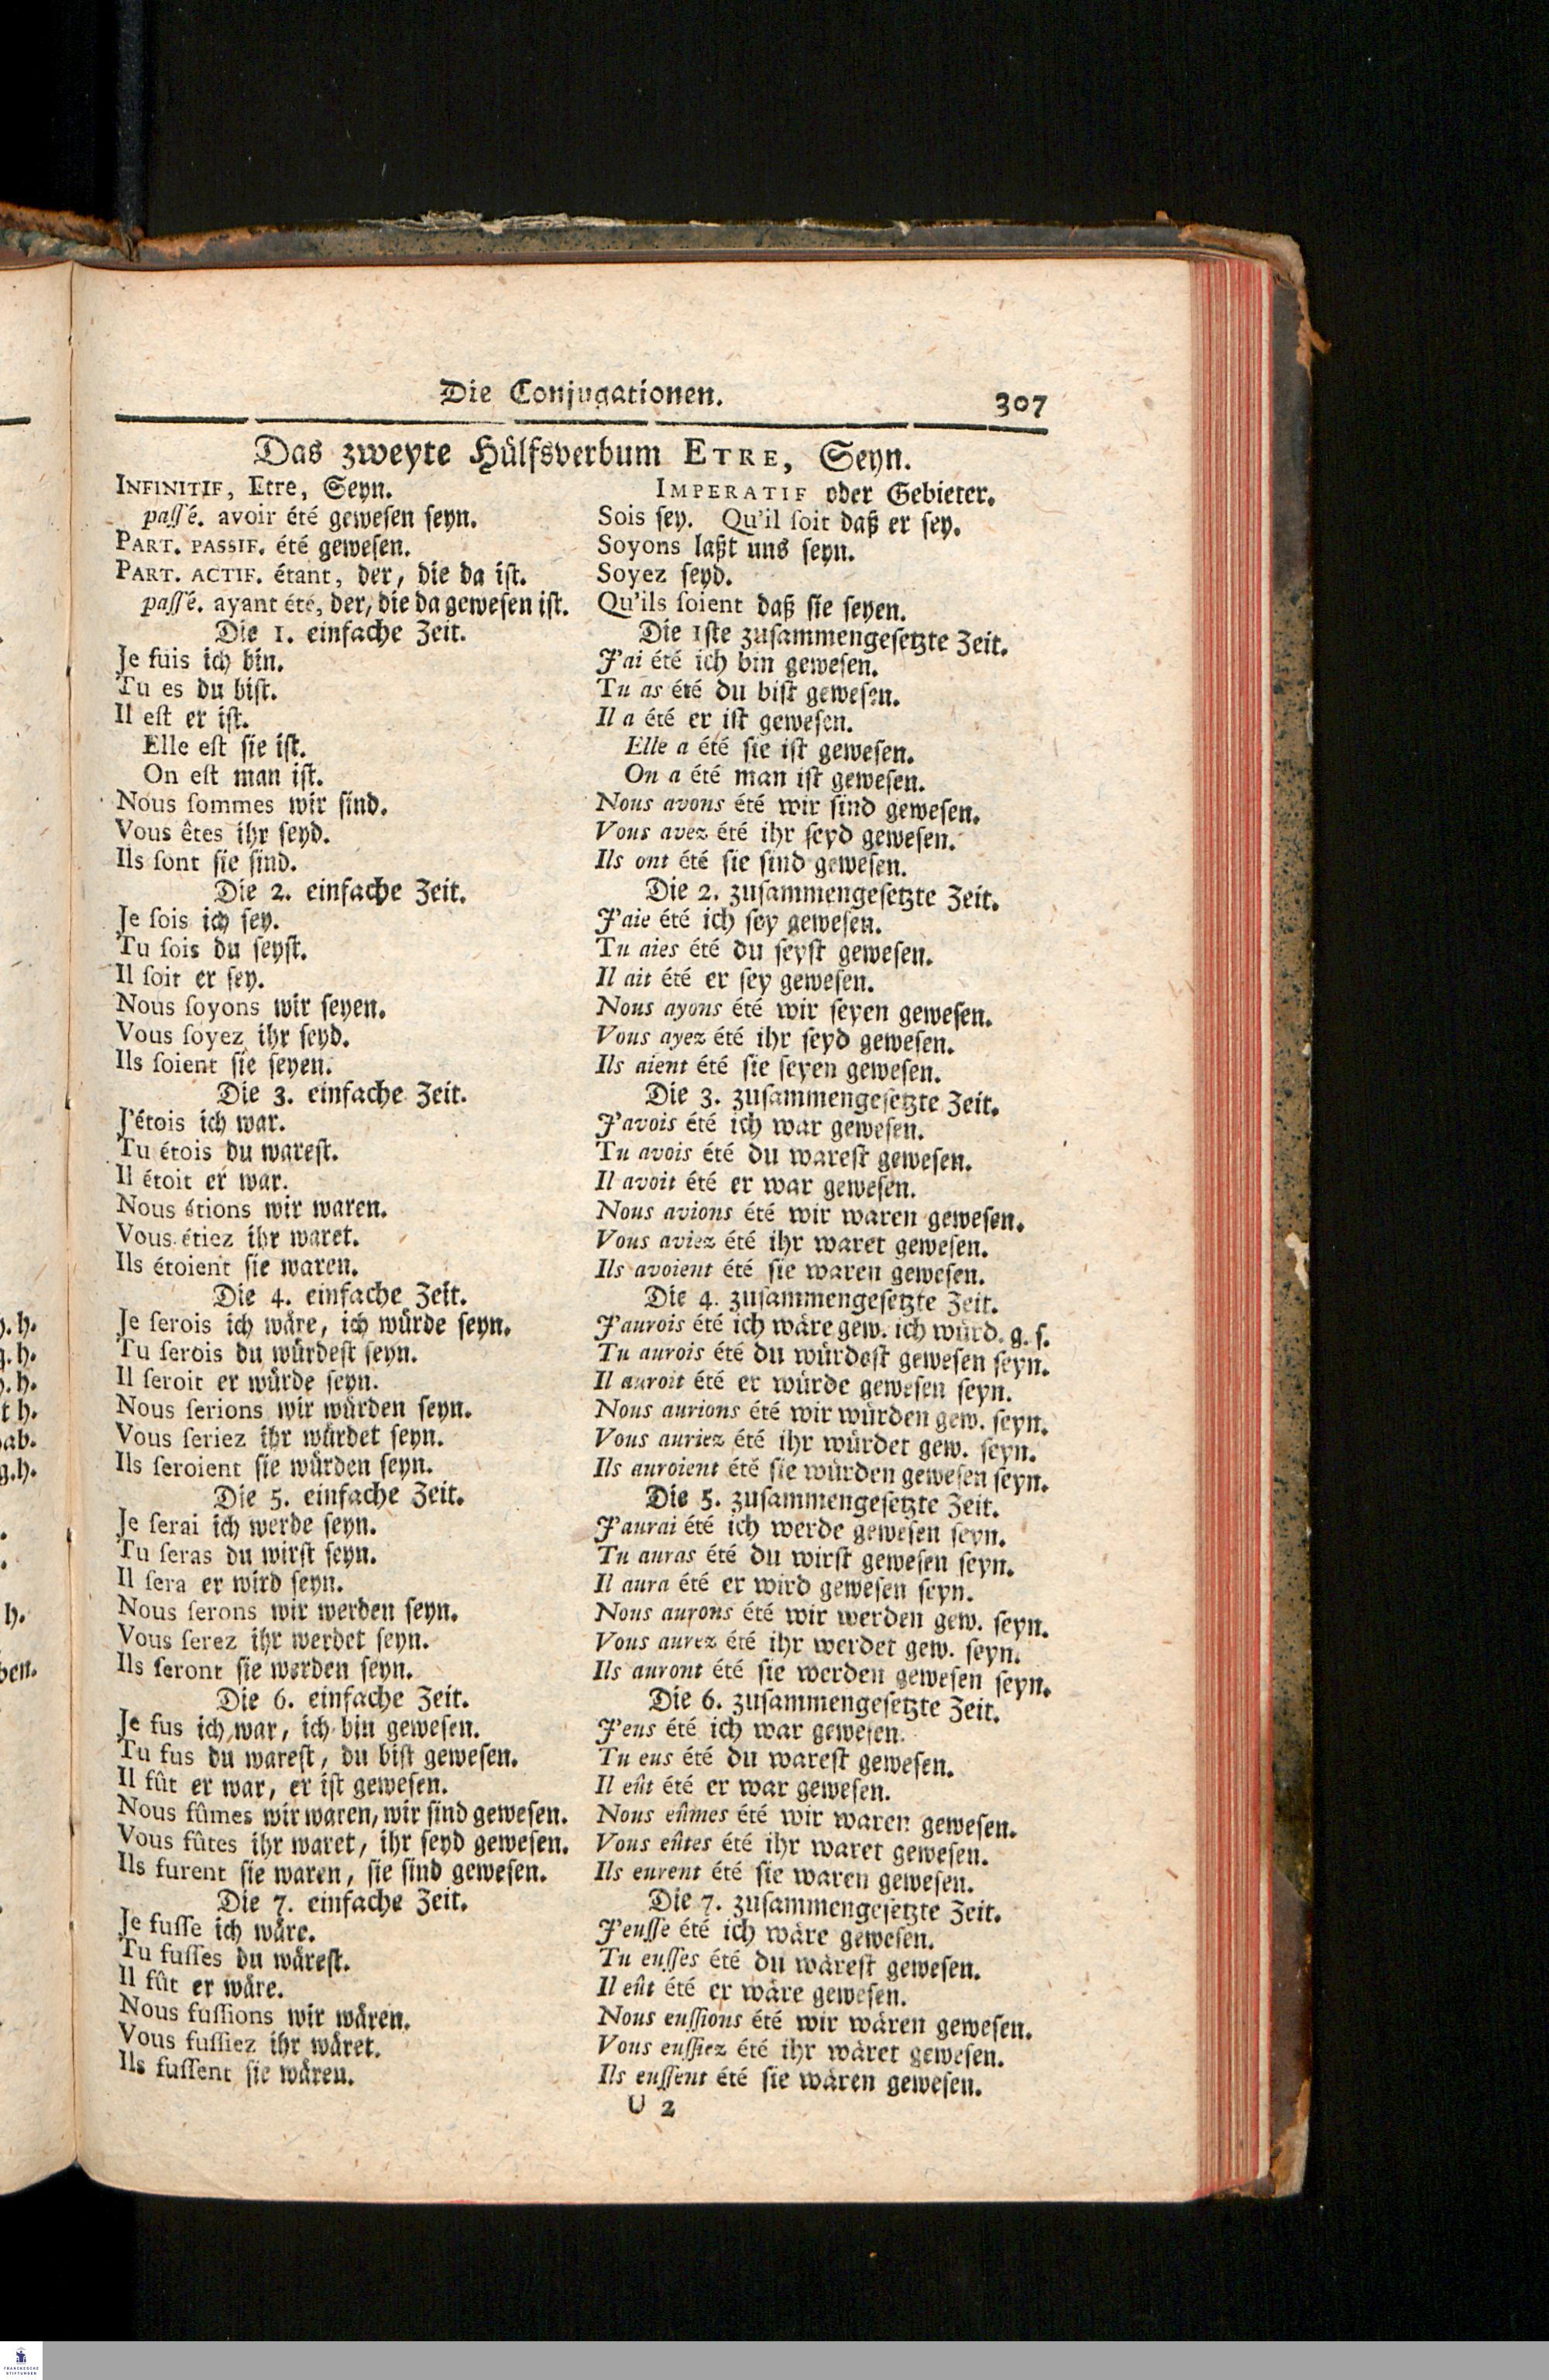 Die Conjugationen.
307
Das zweyte Hülfsverbum ETRE, Seyn.
INFINITIF, Etre, Seyn.
paſſé. avoir été geweſen ſeyn.
PART. PASSIF. été geweſen.
PART. ACTIF. étant, der, die da iſt.
paſſé. ayant été, der, die da geweſen iſt.
Die 1. einfache Zeit.
Je ſuis ich bin.
Tu es du biſt.
Il eſt er iſt.
Elle eſt ſie iſt.
On eſt man iſt.
Nous ſommes wir ſind.
Vous êtes ihr ſeyd.
Ils ſont ſie ſind.
Die 2. einfache Zeit.
Je ſois ich ſey.
Tu ſois du ſeyſt.
Il ſoit er ſey.
Nous ſoyons wir ſeyen.
Vous ſoyez ihr ſeyd.
Ils ſoient ſie ſeyen.
Die 3. einfache Zeit.
J'étois ich war.
Tu étois du wareſt.
Il étoit er war.
Nous étions wir waren.
Vous étiez ihr waret.
Ils étoient ſie waren.
Die 4. einfache Zeit.
Je ſerois ich wäre, ich würde ſeyn.
Tu ſerois du würdeſt ſeyn.
Il ſeroit er würde ſeyn.
Nous ſerions wir würden ſeyn.
Vous ſeriez ihr würdet ſeyn.
Ils ſeroient ſie würden ſeyn.
Die 5. einfache Zeit.
Je ſerai ich werde ſeyn.
Tu ſeras du wirſt ſeyn.
Il ſera er wird ſeyn.
Nous ſerons wir werden ſeyn.
Vous ſerez ihr werdet ſeyn.
Ils ſeront ſie werden ſeyn.
Die 6. einfache Zeit.
Je fus ich war, ich bin geweſen.
Tu fus du wareſt, du biſt geweſen.
Il fût er war, er iſt geweſen.
Nous fûmes wir waren, wir ſind geweſen.
Vous fûtes ihr waret, ihr ſeyd geweſen.
Ils furent ſie waren, ſie ſind geweſen.
Die 7. einfache Zeit.
Je fuſſe ich wäre.
Tu fuſſes du wäreſt.
Il fût er wäre.
Nous fuſſions wir wären.
Vous fuſſiez ihr wäret.
Ils fuſſent ſie wären.
IMPERATIF oder Gebieter.
Sois ſey. Qu'il ſoit daß er ſey.
Soyons laßt uns ſeyn.
Soyez ſeyd.
Qu'ils ſoient daß ſie ſeyen.
Die 1ſte zuſammengeſetzte Zeit.
J'ai été ich bin geweſen.
Tu as été du biſt geweſen.
Il a été er iſt geweſen.
Elle a été ſie iſt geweſen.
On a été man iſt geweſen.
Nous avons été wir ſind geweſen.
Vous avez été ihr ſeyd geweſen.
Ils ont été ſie ſind geweſen.
Die 2. zuſammengeſetzte Zeit.
J'aie été ich ſey geweſen.
Tu aies été du ſeyſt geweſen.
Il ait été er ſey geweſen.
Nous ayons été wir ſeyen geweſen.
Vous ayez été ihr ſeyd geweſen.
Ils aient été ſie ſeyen geweſen.
Die 3. zuſammengeſetzte Zeit.
J'avois été ich war geweſen.
Tu avois été du wareſt geweſen.
Il avoit été er war geweſen.
Nous avions été wir waren geweſen.
Vous aviez été ihr waret geweſen.
Ils avoient été ſie waren geweſen.
Die 4. zuſammengeſetzte Zeit.
J'aurois été ich wäre gew. ich würd. g. ſ.
Tu aurois été du würdeſt geweſen ſeyn.
Il auroit été er würde geweſen ſeyn.
Nous aurions été wir würden gew. ſeyn.
Vous auriez été ihr würdet gew. ſeyn.
Ils auroient été ſie würden geweſen ſeyn.
Die 5. zuſammengeſetzte Zeit.
J'aurai été ich werde geweſen ſeyn.
Tu auras été du wirſt geweſen ſeyn.
Il aura été er wird geweſen ſeyn.
Nous aurons été wir werden gew. ſeyn.
Vous aurez été ihr werdet gew. ſeyn.
Ils auront été ſie werden geweſen ſeyn.
Die 6. zuſammengeſetzte Zeit.
J'eus été ich war geweſen.
Tu eus été du wareſt geweſen.
Il eût été er war geweſen.
Nous eûmes été wir waren geweſen.
Vous eûtes été ihr waret geweſen.
Ils eurent été ſie waren geweſen.
Die 7. zuſammengeſetzte Zeit.
J'euſſe été ich wäre geweſen.
Tu euſſes été du wäreſt geweſen.
Il eût été er wäre geweſen.
Nous euſſions été wir wären geweſen.
Vous euſſiez été ihr wäret geweſen.
Ils euſſent été ſie wären geweſen.
U 2
FRANCKESCHE
STIFTUNGEN